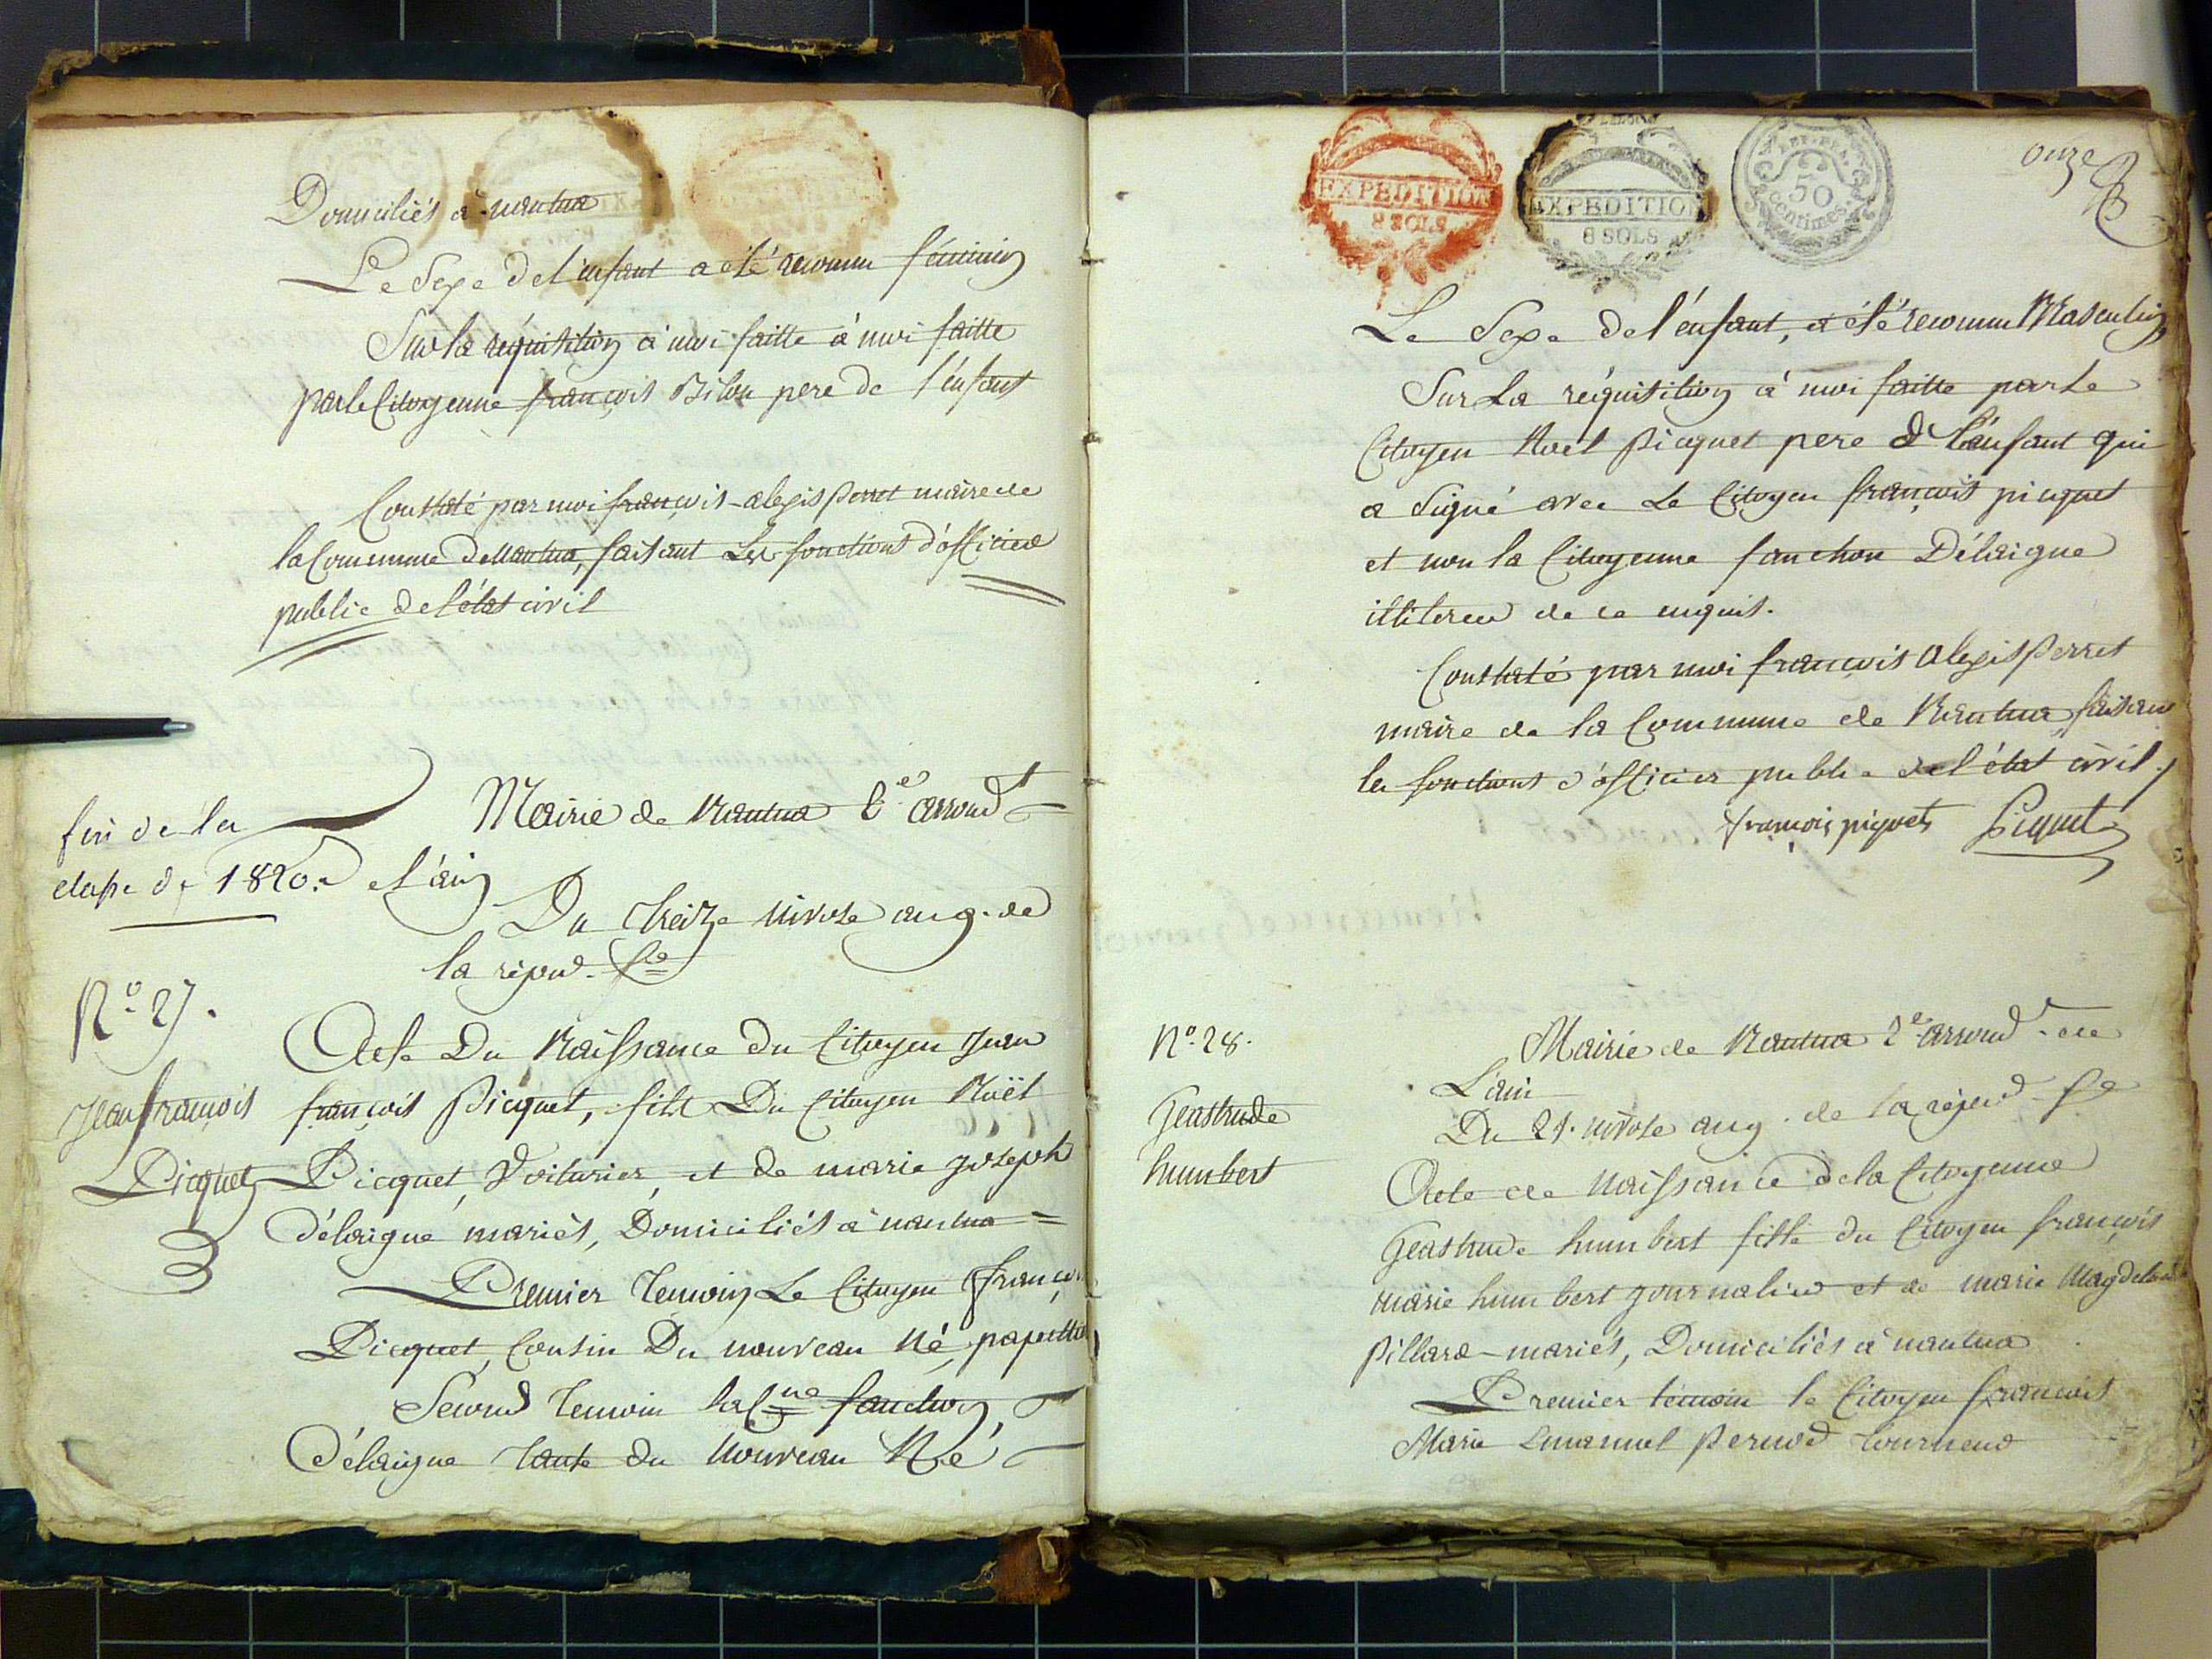 Domiciliés a nantua
Le Sexe de l'enfant a été reconnu féminin
Sur la réquisition à moi faitte à moi faitte
par le Citoyenne françois Bilon pere de l'enfant
Constaté par moi françois-alexis perret maire de
la Commune de Nantua, faisant Les fonctions d'officier
public de l'état civil
fin de la
classe de 1820.
Mairie de Nantua 2e arrond.t
de l'ain
Du treize nivose an 9. de
la répub. f.se
N.o 27.
Jean françois
Picquet
Acte Du Naissance du Citoyen Jean
françois Picquet, fils Du Citoyen Noël
Picquet, Voiturier, et de marie joseph
délaigue mariés, Domiciliés à nantua =
Premier temoin Le Citoyen françois
Picquet, Cousin Du nouveau né, papettier
Second temoin la C.ne fanchon
Délaigue tante du Nouveau Né
EXPEDITION
8 SOLS
EXPEDITION
8 SOLS
REP. FRA.
50
centimes.
onze
Le Sexe de l'énfant, a été reconnu Masculin
Sur La réquisition à moi faitte par Le
Citoyen Noel Picquet pere de l'énfant qui
a Signé avec Le Citoyen françois picquet
et non la Citoyenne fanchon Délaigue
illiteree de ce enquis.
Constaté par moi françois Alexis Perret
maire de la Commune de Nantua, faisant
les fonctions d'officier public de l'état civil /
françois piquet Picquet
N.o 28.
Geastrude
humbert
Mairie de Nantua 2e arrond.t de
L'ain
Du 21. nivose an 9. de la répub. f.se
Acte de Naissance de la Citoyenne
Geastrude humbert fille du Citoyen françois
marie humbert journalier et de marie Magdelaine
Pillard mariés, Domiciliés à nantua
Premier témoin le Citoyen françois
Marie Emanuel Pernod tourneur